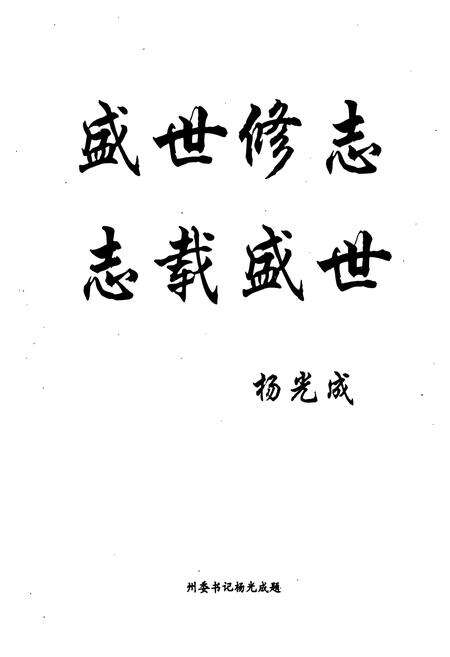 盛世修志
志载盛世
杨光成
州委书记杨光成题